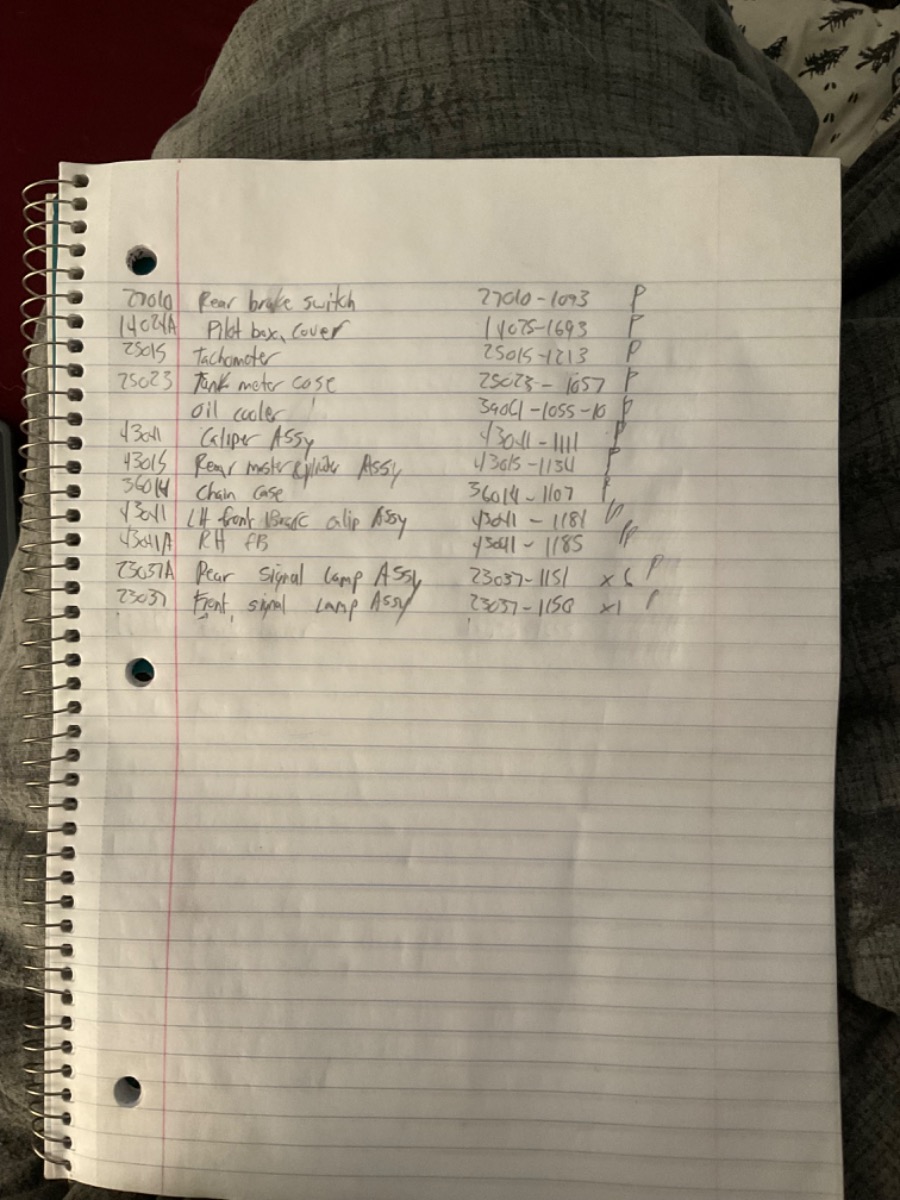 27010 Rear brake switch 27010-1093 P
14024A Pilot box, cover 14025-1693 P
25015 Tachometer 25015-1213 P
25023 Tank meter case 25023-1057 P
oil cooler 39061-1055-10 P
43041 Caliper Assy 43041-1111 P
43015 Rear master cylinder Assy 43015-1134 P
36014 Chain case 36014-1107 P
43041 LH front Assy 43041-1181
43041A RH FB 43041-1185 P
23037A Rear signal lamp Assy 23037-1151 P
23037 Front signal Lamp Assy 23037-1150 x1 P